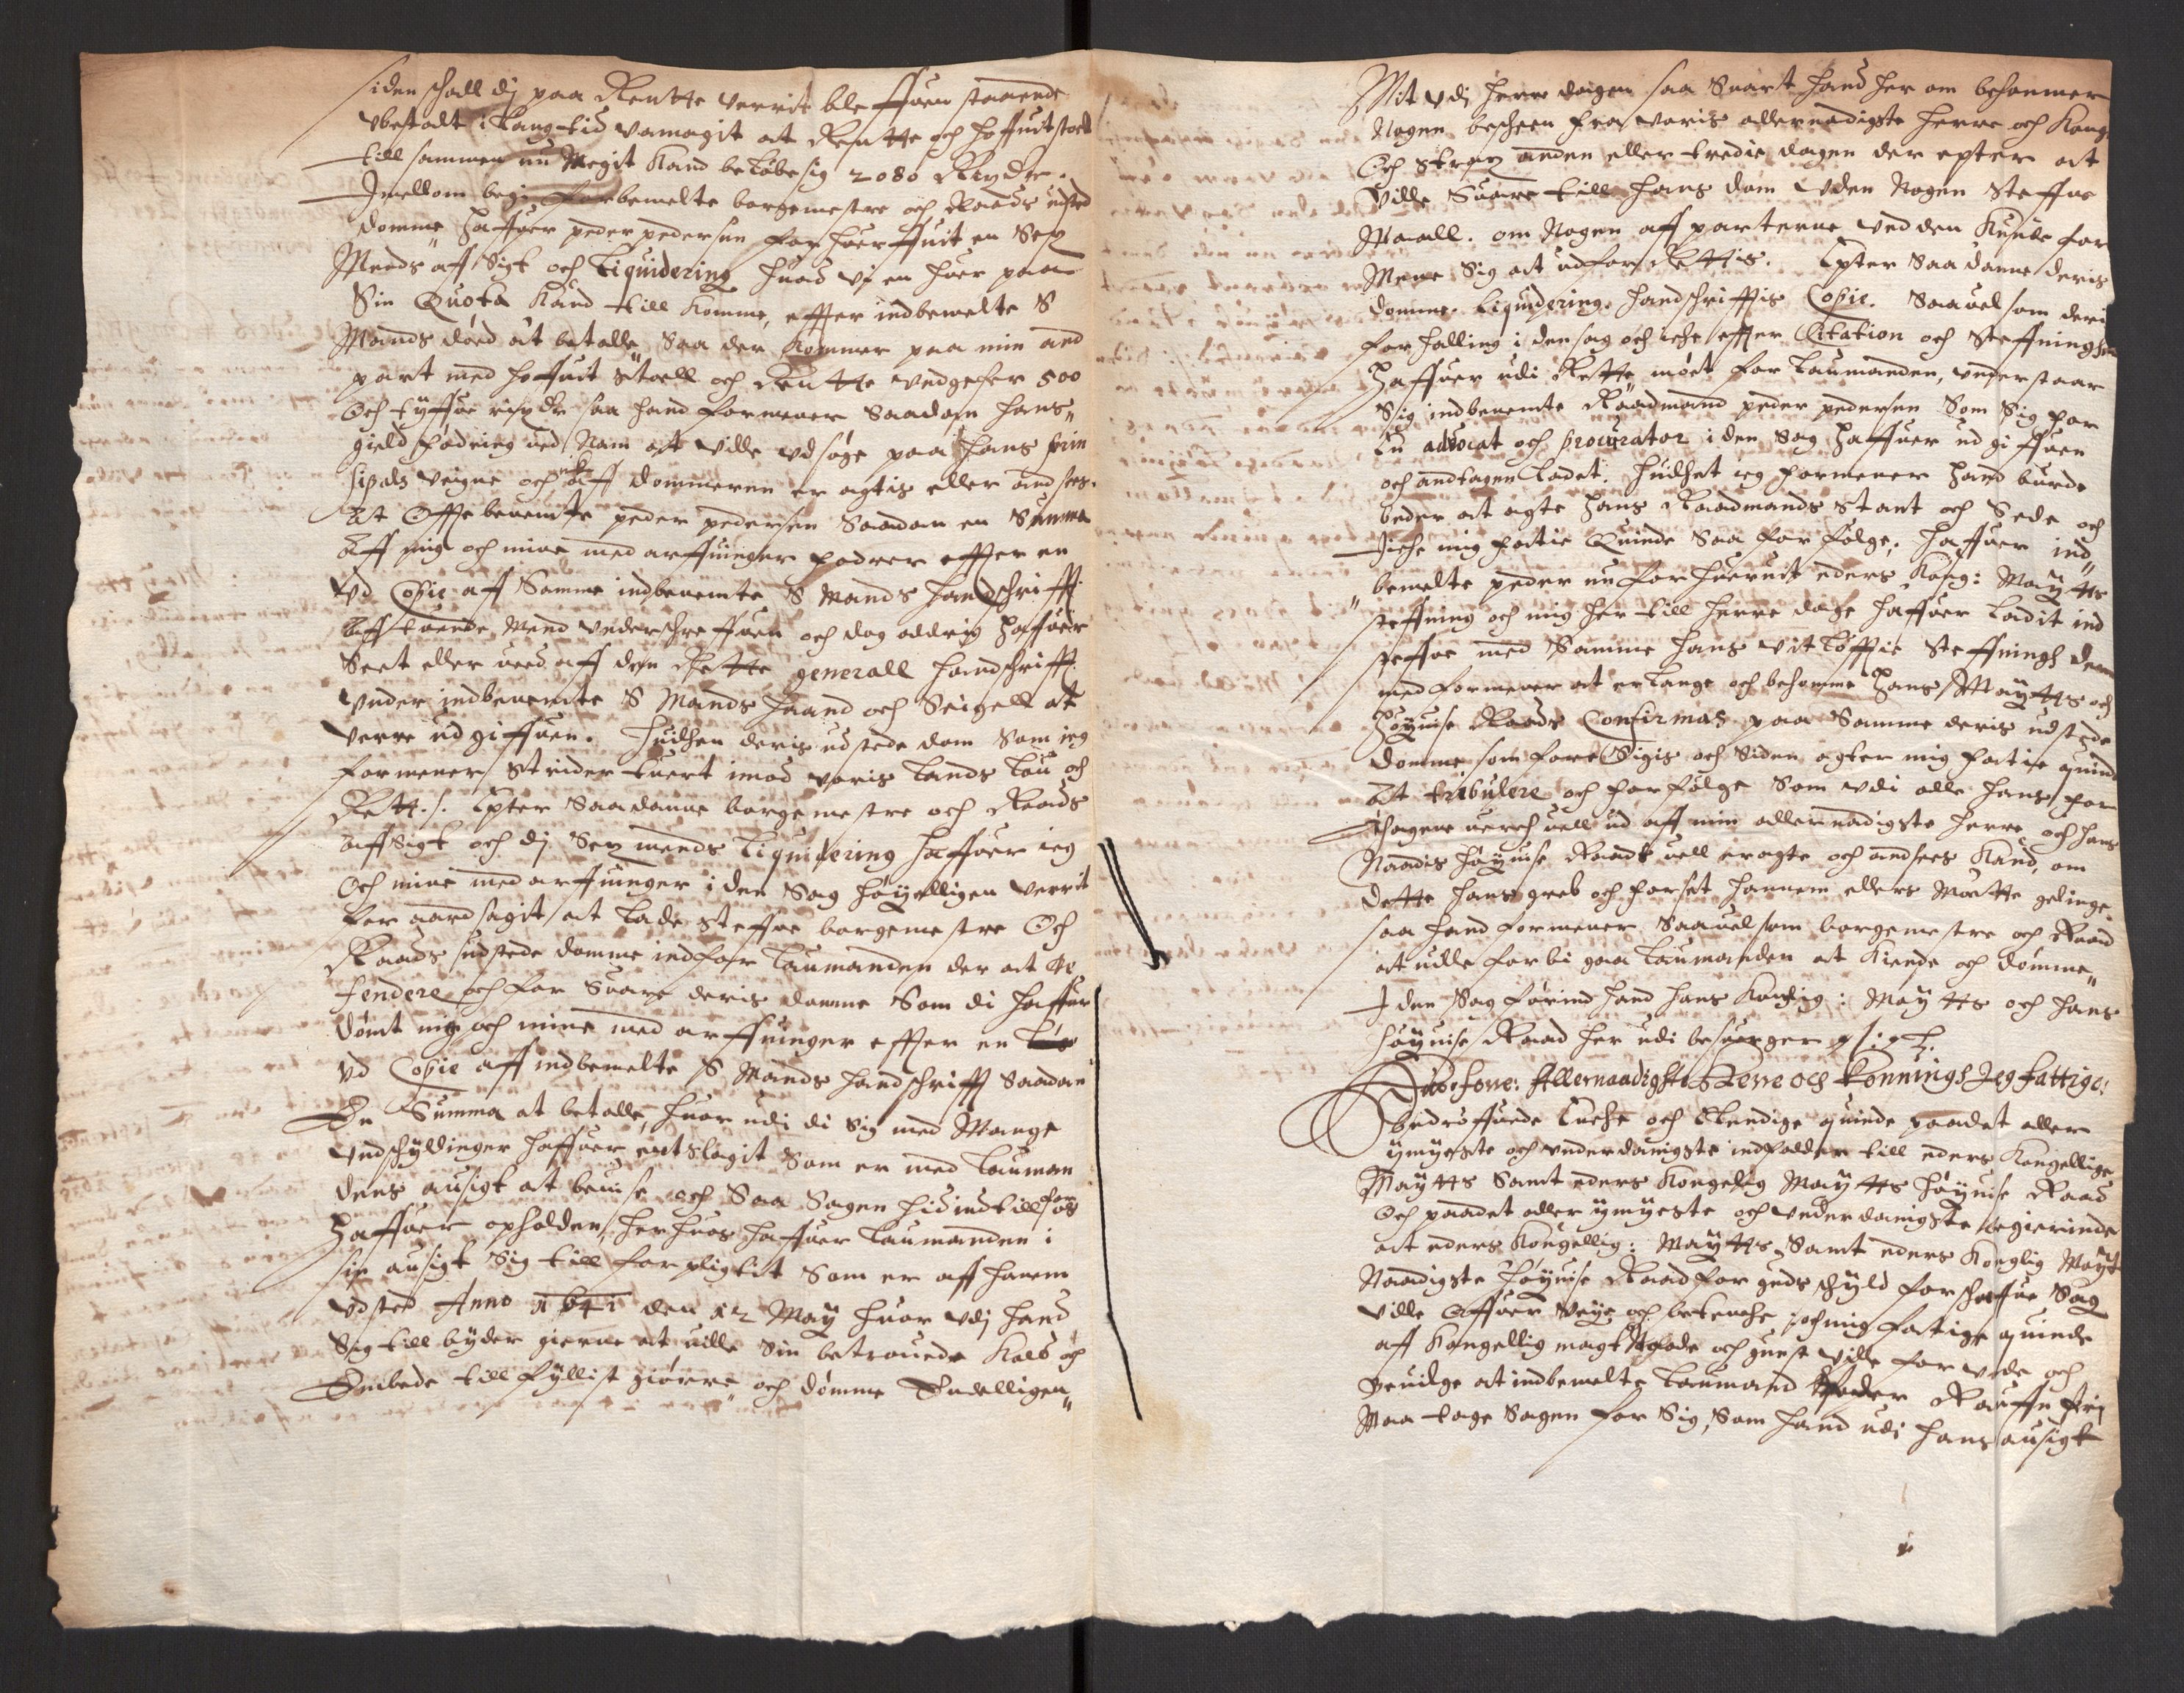 siden schall dj paa Rentte verrit bleffuen staaende
vbetalt i Lang tid vamagit at Rentte och hoffuitstoell
till sammen nu Megit Kand beløbe sig 2080 Rixdr.
Imellom begi forbemelte borgemestre och Raads udsted
domme haffuer peder pedersen forhuerffuit en Sex
Mends aff Sigt och Liquidering huad vi en huer paa
Sin Quota Kand till Komme, effter indbemelte S
Mands død at betalle, Saa der Kommer paa min and
part med hoffuit stoell och Rentte vedgefer 500
Och tyffue rixdr saa hand formener Saadan hans
gield fodring ved Nam at ville udsøge paa hans prin
sipals veigne och aff dommeren er agtis eller and sees.
At Offte benemte peder pedersen Saadan en Summa
Aff mig och mine medarffuinger fodrer effter en
Ud Copie aff Samme indbenemte S Mands handschrifft
Aff toende Mend underschreffuen och dog aldrig haffuer
Seet eller veed aff den Rette generall handschrifft
Under indbenemte S Mands haand och Seigell at
verre udgiffuen. Huilchen deris udstede dom Som ieg
formener strider tuert imod voris Lands Lou och
Rett. Epter Saadanne borgemestre och Raads
Affsigt och dj Sex mends Liquidering haffuer ieg
Och mine medarffuinger i den Sag høyelligen verrit
for aarsagit at Lade steffne borgemestre Och
Raads udstede domme indfor Laumanden der at de
fendere och for Suare deris domme Som di haffuer
dømt mig och mine med arffuinger effter en
Ud Copie aff indbemelte S Mands handschrifft Saadan
En Summa at betalle, huor udi di sig med Mange
Undschyldinger haffuer entslagit Som er med Lauman
dens ausigt at beuise och Saa Sagen hid indtill for os
haffuer opholden, her huos haffuer Laumanden i
sin ausigt Sig till forpligtit Som er aff hanem
udsted Anno 1641 den 12 May huor udj hand
Sig till byder gierne at uille Sin betrouede Kald och
Embede till fyllist giørre och dømme Endelligen
Mit udj herre dagen saa Snart hand her om bekommer
Nogen bescheen fra voris allernadigste herre och Kong
Och strax anden eller tredie dagen der epter at
Ville Suare till hans dom uden Nogen Steffne
Maall. om Nogen aff parterne ved den Kunde for
Mene Sig at udfor Rettis. Epter Saadanne deris
domme Liquidering handschrifftis Copie. Saauel som deris
forhalling i den sag och iche effter Citation och Steffning
haffuer udi Rette møet for Laumanden, understaar
Sig indbenemte Raadmand peder pedersen Som Sig for
En advocat och procurator i den Sag haffuer ud giffuen
och andtagen Ladet. huilchet ieg formener hand burde
beder at agte hans Raadmands Stant och Sede och
Iche mig fattie Quinde Saa for følge. haffuer ind
bemelte peder nu forhueruit eders Kong: Maytts
steffning och mig her till herre dage haffuer Ladit ind
steffne med Samme hans vitløfftie Steffning der
med formener at erlange och bekomme hans Maytts och
høyuise Raads Confirmas paa Samme deris udstede
domme som fore Sigis och siden agter mig fattie quinde
At tribulere och forfølge Som udi alle hans for
[...] uerch uell ud aff min allernadigste herre och hans
Naadis høyuise Raads uell eragte och andsees Kand, om
dette hans greb och forset hannem ellers Motte gelinge
saa hand formener Saauelsom borgemestre och Raad
at uille forbi gaa Laumanden at Kiende och dømme
I den Sag førind hand hans Kongig: Maytts och hans
høyuise Raad her udi besuerger
Diszfore: Allernaadigste Herre och Konning Jeg fattige:
bedrøffuede Enche och Elendige quinde paadet aller
ymygste och underdanigste indfalder till eders Kongellige
Maytts Samt eders Kongelig Maytts høyuise Raad
Och paadet aller ymygste och underdanigste begierinde
at eders Kongellig: Maytts Samt eders Konglig Mayt
Naadigste høyuise Raad for guds schyld for schaffue Sag
ville offuer veye och betenche och mig fatige quinde
aff Kongellig magt Naade och gunst ville for unde och
beuilge at indbemelte Laumand peder
Maa tage Sagen for Sig, Som hand udi hans ausigt